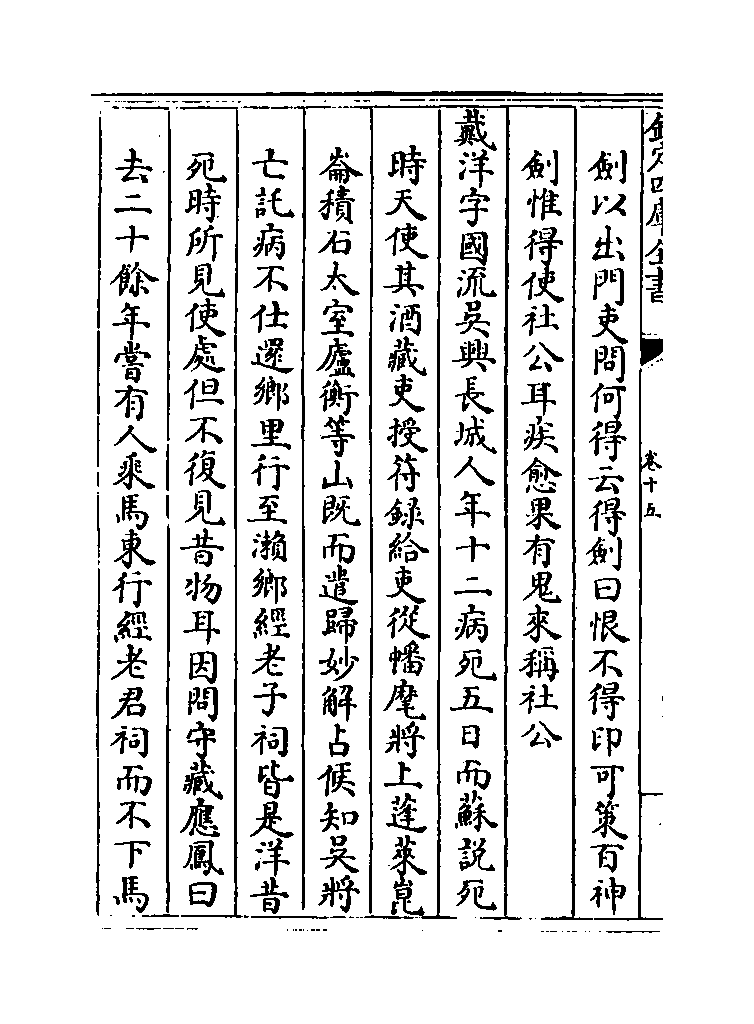 欽定四庫全書
卷十五
劍以出門吏問何得云得劍曰恨不得印可策百神
劍惟得使社公耳疾愈果有鬼來稱社公
戴洋字國流吳興長城人年十二病死五日而蘇說死
時天使其酒藏吏授符録給吏從幡麾將上蓬萊崑
崙積石太室廬衡等山既而遣歸妙解占候知吳將
亡託病不仕還鄉里行至瀨鄉經老子祠皆是洋昔
死時所見使處但不復見昔物耳因問守藏應鳳曰
去二十餘年嘗有人乘馬東行經老君祠而不下馬